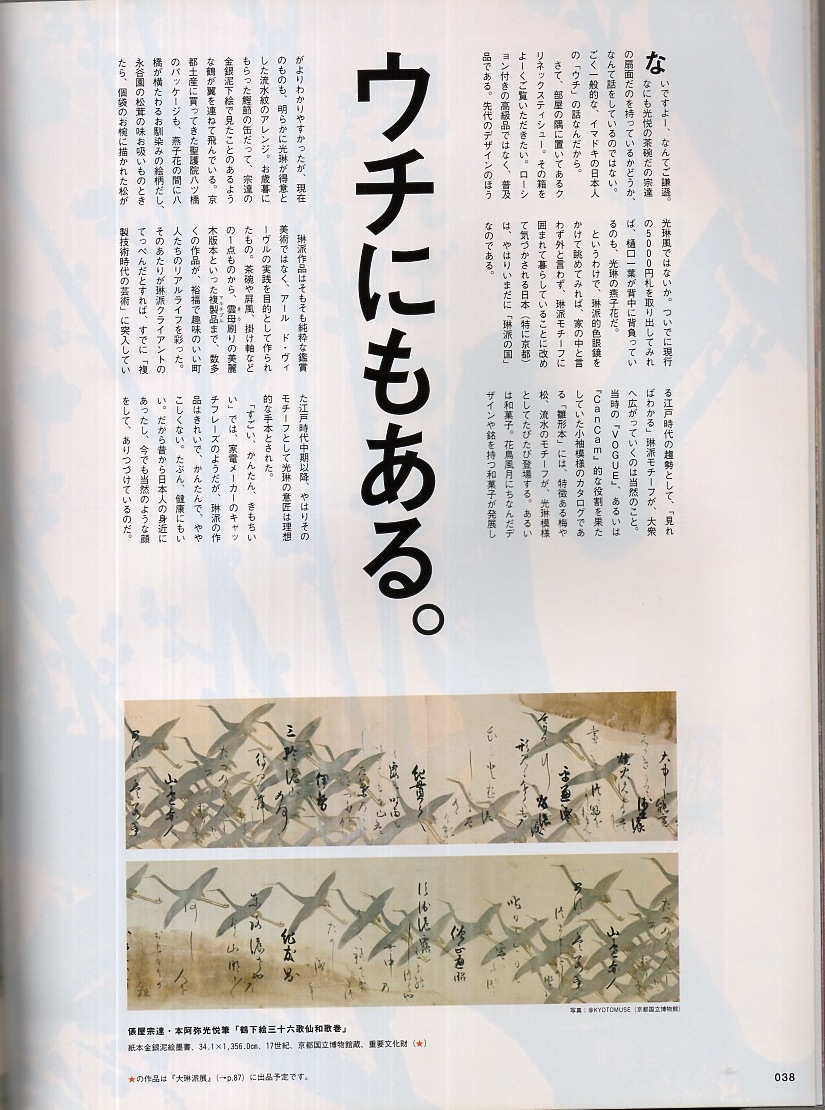 ウチにもある。
ないですよー、なんてご謙遜。
なにも光悦の茶碗だの宗達
の扇面だのを持っているかどうか、
なんて話をしているのではない。
ごく一般的な、イマドキの日本人
の「ウチ」の話なんだから。
さて、部屋の隅に置いてあるク
リネックスティシュー。その箱を
よーくご覧いただきたい。ローシ
ョン付きの高級品ではなく、普及
品である。先代のデザインのほう
がよりわかりやすかったが、現在
のものも、明らかに光琳が得意と
した流水紋のアレンジ。お歳暮に
もらった鰹節の缶だって、宗達の
金銀泥下絵で見たことのあるよう
な鶴が翼を連ねて飛んでいる。京
都土産に買ってきた聖護院八ツ橋
のパッケージも、燕子花の間に八
橋が横たわるお馴染みの絵柄だし、
永谷園の松茸の味お吸いものとき
たら、個袋のお椀に描かれた松が
光琳風ではないか。ついでに現行
の5000円札を取り出してみれ
ば、樋口一葉が背中に背負ってい
るのも、光琳の燕子花だ。
というわけで、琳派的色眼鏡を
かけて眺めてみれば、家の中と言
わず外と言わず、琳派モチーフに
囲まれて暮らしていることに改め
て気づかされる日本（特に京都）
は、やはりいまだに「琳派の国」
なのである。
琳派作品はそもそも純粋な鑑賞
美術ではなく、アール　ド・ヴィ
ーヴルの実践を目的として作られ
たもの。茶碗や屏風、掛け軸など
の1点ものから、雲母刷りの美麗
木版本といった複製品まで、数多
くの作品が、裕福で趣味のいい町
人たちのリアルライフを彩った。
そのあたりが琳派クライアントの
てっぺんだとすれば、すでに「複
製技術時代の芸術」に突入してい
る江戸時代の趨勢として、「見れ
ばわかる」琳派モチーフが、大衆
へ広がっていくのは当然のこと。
当時の『VOGUE』、あるいは
『CanCam』的な役割を果た
していた小袖模様のカタログであ
る「雛形本」には、特徴ある梅や
松、流水のモチーフが、光琳模様
としてたびたび登場する。あるい
は和菓子。花鳥風月にちなんだデ
ザインや銘を持つ和菓子が発展し
た江戸時代中期以降、やはりその
モチーフとして光琳の意匠は理想
的な手本とされた。
「すごい、かんたん、きもちい
い」では、家電メーカーのキャッ
チフレーズのようだが、琳派の作
品はきれいで、かんたんで、やや
こしくない。たぶん、健康にもい
い。だから昔から日本人の身近に
あったし、今でも当然のような顔
をして、ありつづけているのだ。
写真：@KYOTOMUSE（京都国立博物館）
俵屋宗達・本阿弥光悦筆「鶴下絵三十六歌仙和歌巻」
紙本金銀泥絵墨書、34.1×1,356.0cm、17世紀、京都国立博物館蔵、重要文化財（★）
★の作品は『大琳派展』（→p.87）に出品予定です。
038